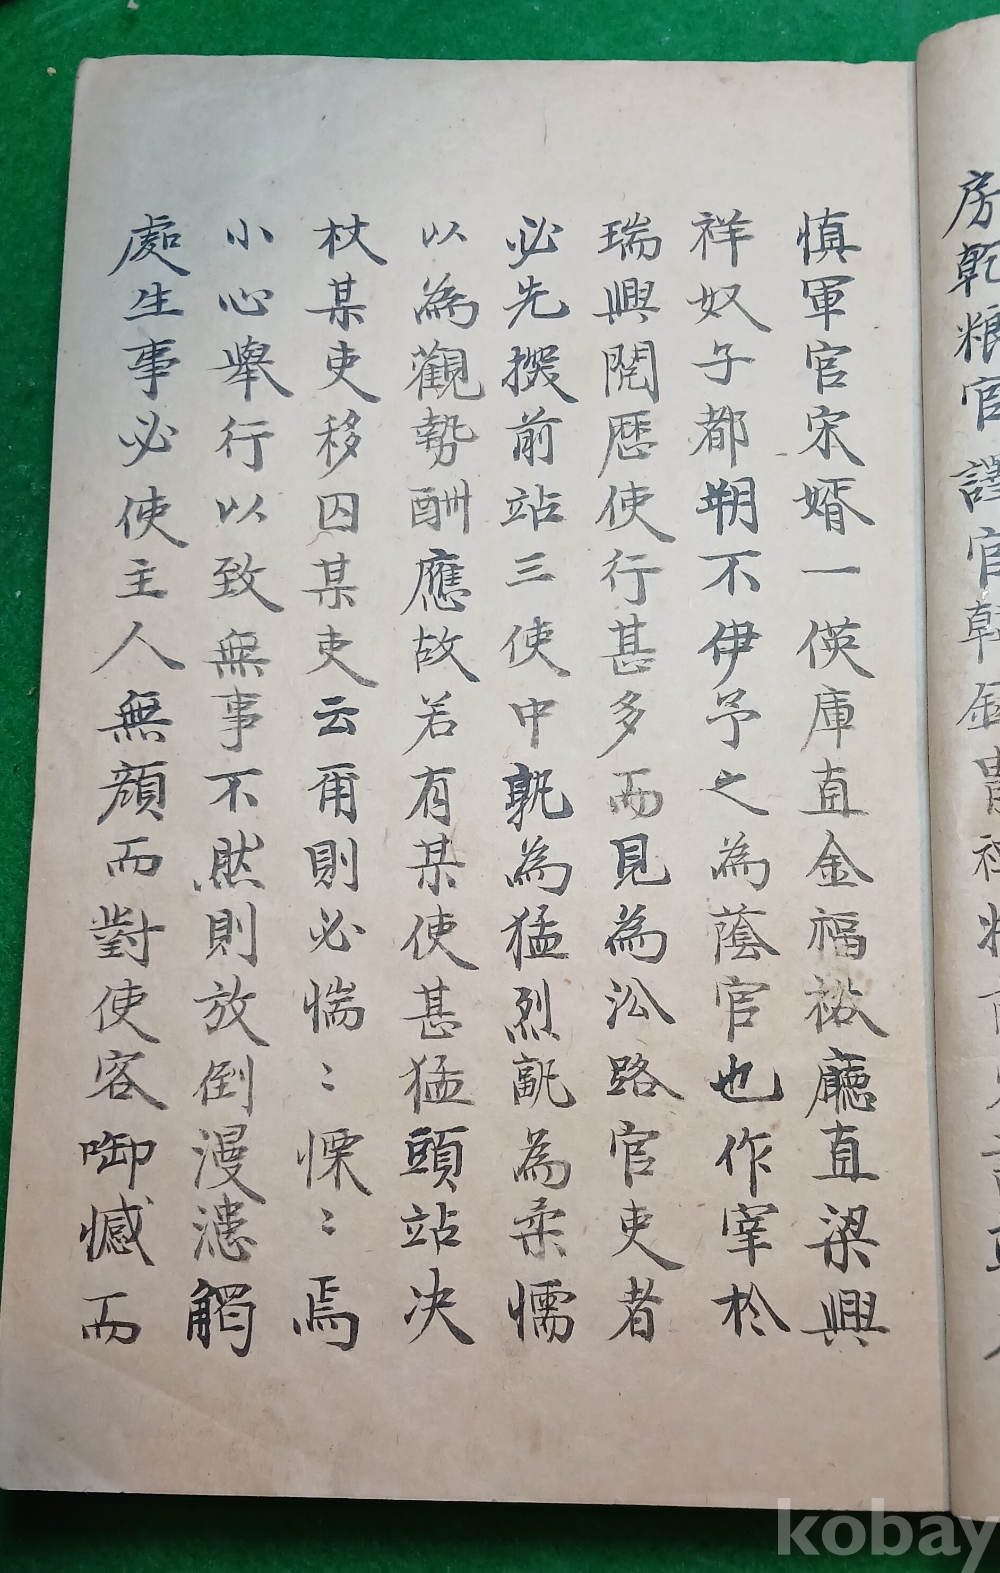 房乾粮官譯官乾
慎軍官宋婿一偀庫直金福裕廳直梁興
祥奴子都朔不伊予之為蔭官也作宰於
瑞興閱歷使行甚多而見為沿路官吏者
必先探前站三使中孰為猛烈孰為柔懦
以為觀勢酬應故若有某使甚猛頭站决
杖某吏移囚某吏云甭則必惴〻慄〻焉
小心舉行以致無事不然則放倒漫漶觸
處生事必使主人無顔而對使客啣憾而
kobay